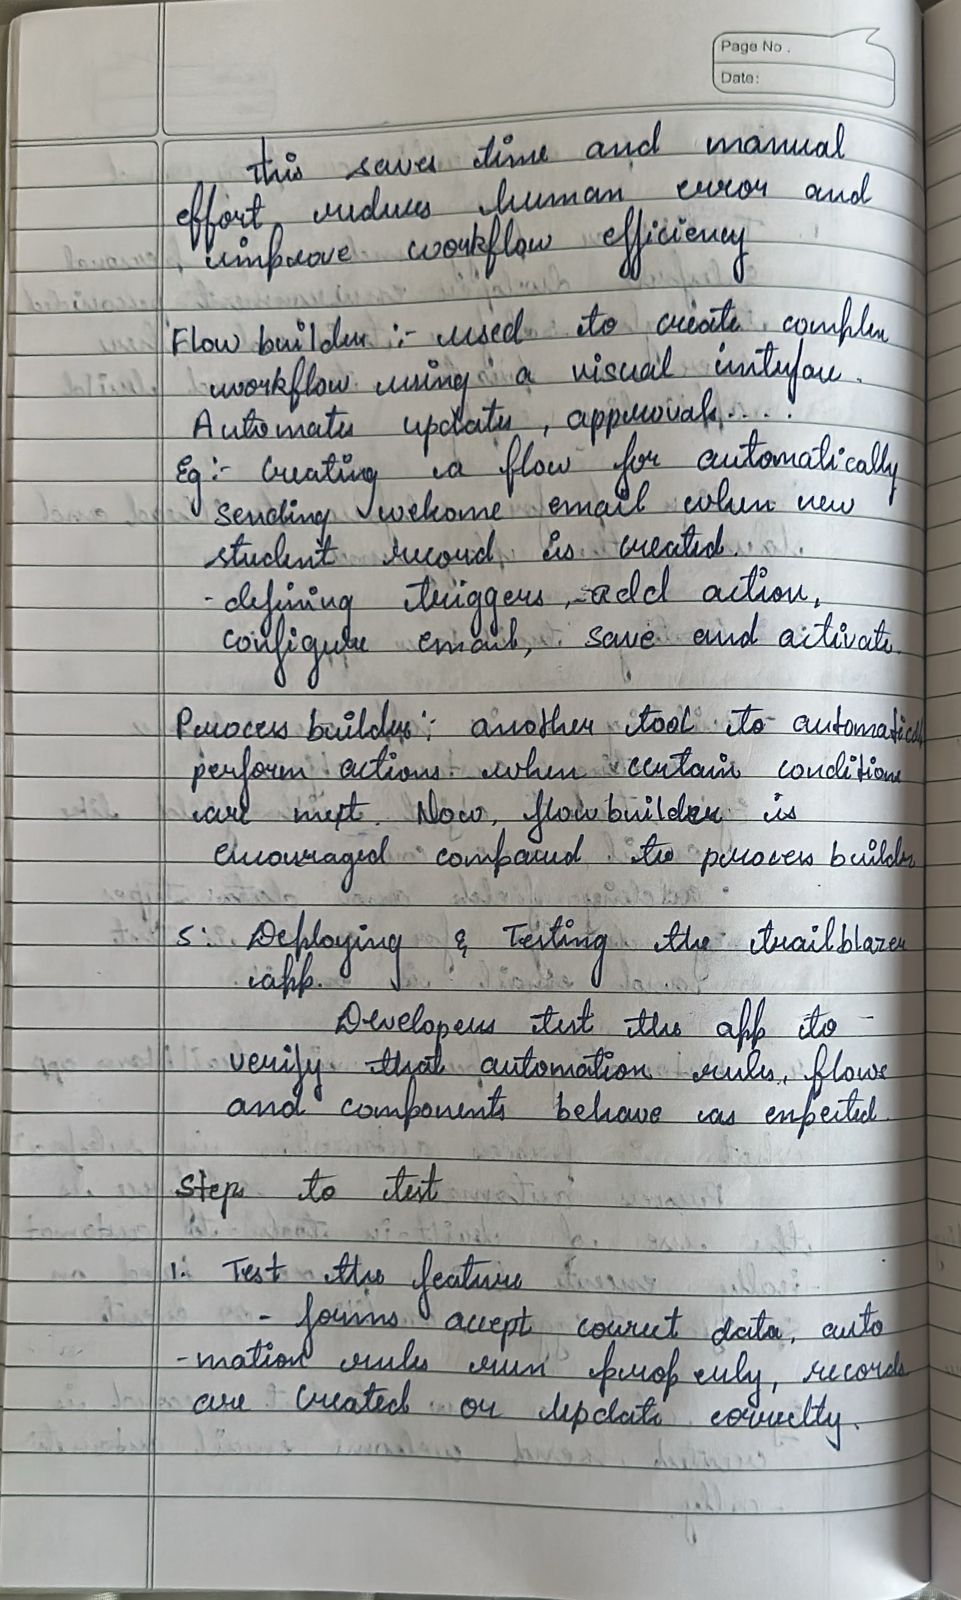 Page No.
Date:
This saves time and manual
effort, reduces human error and
improve workflow efficiency
Flow builder :- used to create complex
workflow using a visual interface.
Automate update, approvals....
Eg :- Creating a flow for automatically
sending welcome email when new
student record is created.
- defining triggers, add action,
configure email, save and activate.
Process builder : another tool to automatically
perform actions when certain conditions
are met. Now, flowbuilder is
encouraged compared to process builder
5: Deploying & Testing the trailblazer
app.
Developers test the app to
verify that automation rules, flows
and components behave as expected.
Steps to test
1. Test the feature
- forms accept correct data, auto
-mation rules run properly, records
are created or update correctly.